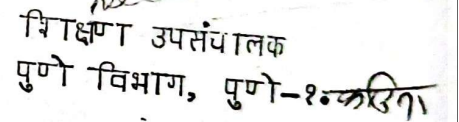 शिक्षण उपसंचालक
पुणे विभाग, पुणे-१.करिता